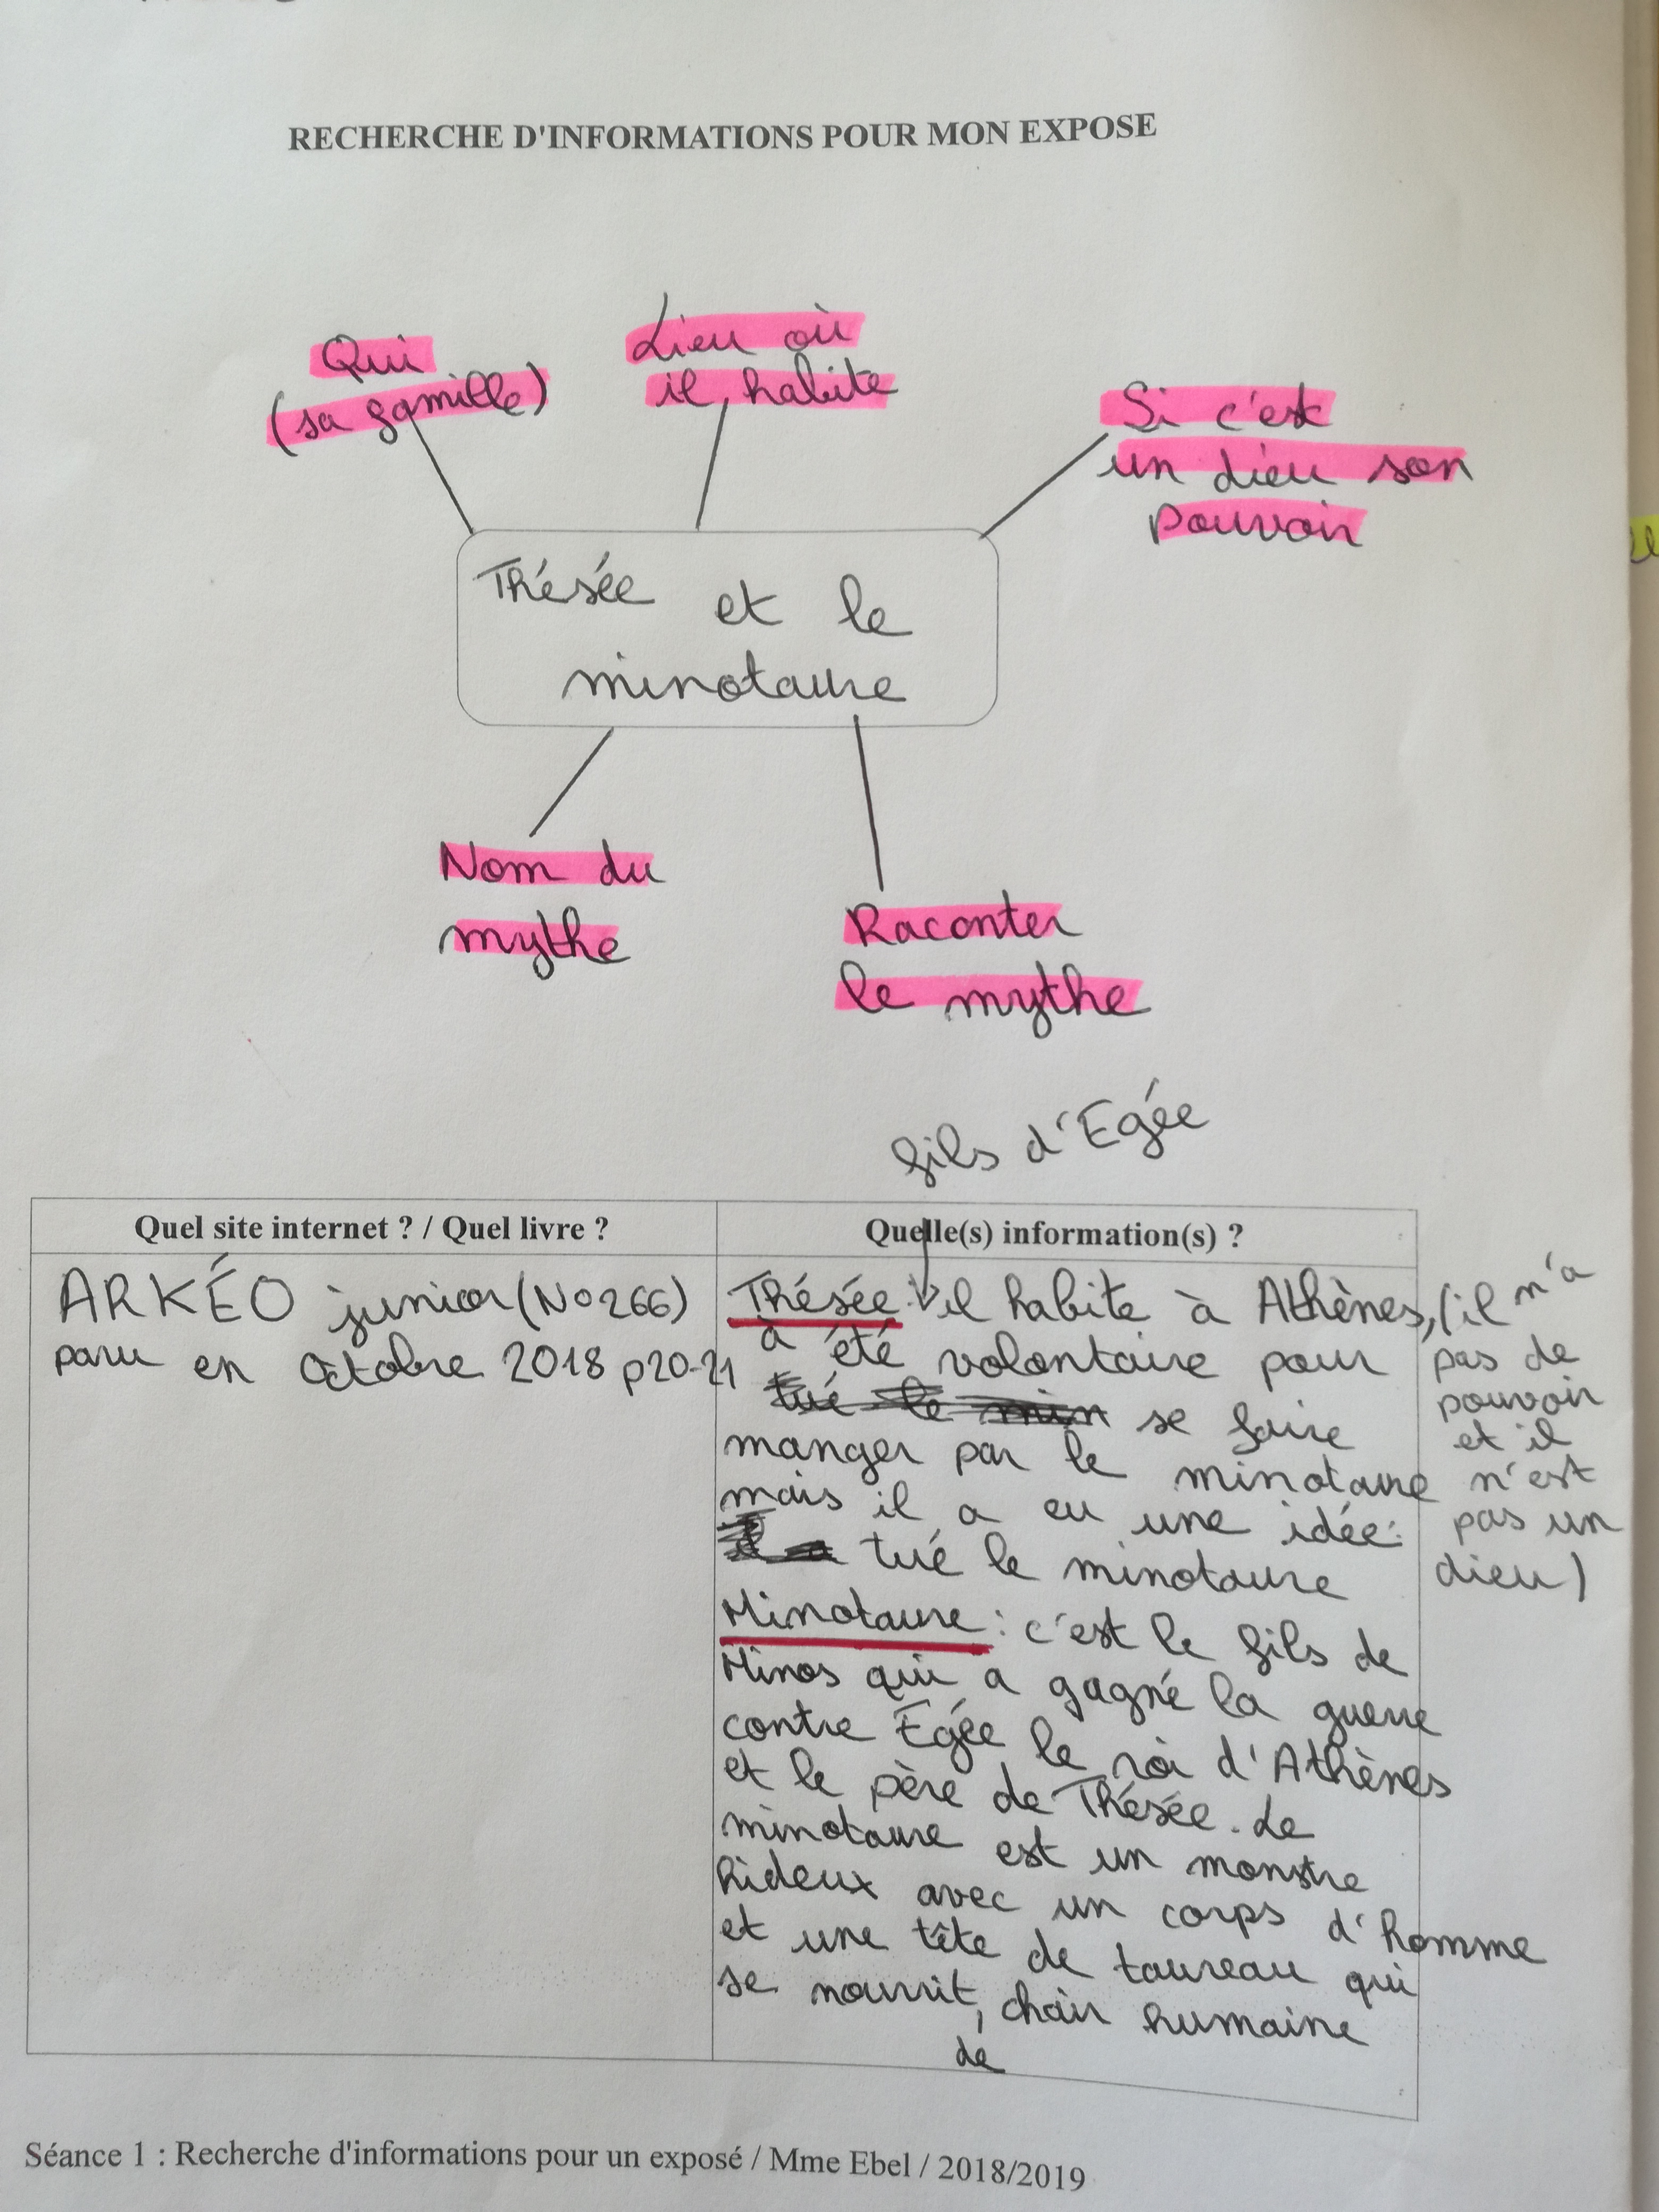 RECHERCHE D'INFORMATIONS POUR MON EXPOSE
Qui
(sa famille)
Lieu où
il habite
Si c'est
un dieu son
pouvoir
Thésée et le
minotaure
Nom du
mythe
Raconter
le mythe
fils d'Egée
Quel site internet ? / Quel livre ?
ARKÉO junior (No 266)
paru en Octobre 2018 p20-21
Quelle(s) information(s) ?
Thésée : il habite à Athènes,
à été volontaire pour
tué le min se faire
manger par le minotaure
mais il a eu une idée:
tué le minotaure
(il n'a
pas de
pouvoir
et il
n'est
pas un
dieu)
Minotaure : c'est le fils de
Minos qui a gagné la guerre
contre Egée le roi d'Athènes
et le père de Thésée. Le
minotaure est un monstre
hideux avec un corps d'homme
et une tête de taureau qui
se nourrit, chair humaine
de
Séance 1 : Recherche d'informations pour un exposé / Mme Ebel / 2018/2019